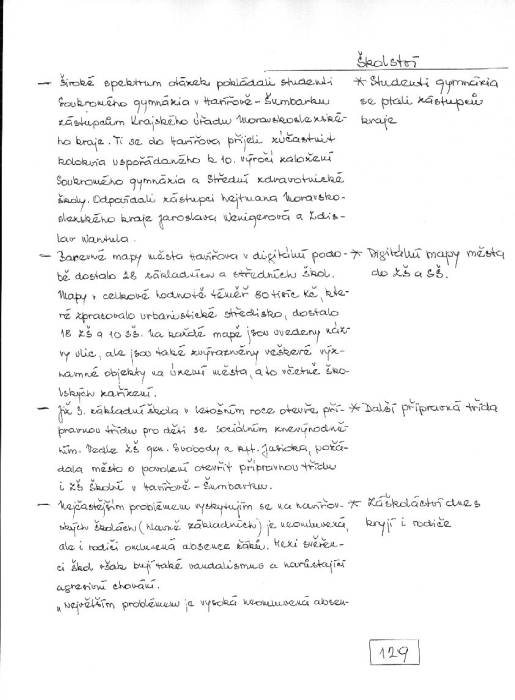 Školství
— Široké spektrum otázek pokládali studenti
Soukromého gymnázia v Havířově-Šumbarku
zástupcům Krajského úřadu Moravskoslezské-
ho kraje. Ti se do Havířova přijeli zúčastnit
kolokvia uspořádaného k 10. výročí založení
Soukromého gymnázia a Střední zdravotnické
školy. Odpovídali zástupci hejtmana Moravsko-
slezského kraje Jaroslava Wenigerová a Zdis-
lav Wantula.
* Studenti gymnázia
se ptali zástupců
kraje
— Barevné mapy města Havířova v digitální podo-
bě dostalo 28 základních a středních škol.
Mapy v celkové hodnotě téměř 80 tisíc Kč, kte-
ré zpracovalo urbanistické středisko, dostalo
18 ZŠ a 10 SŠ. Na každé mapě jsou uvedeny náz-
vy ulic, ale jsou také zvýrazněny veškeré výz-
namné objekty na území města, a to včetně ško-
lských zařízení.
* Digitální mapy města
do ZŠ a SŠ.
— Již 3. základní škola v letošním roce otevře pří-
pravnou třídu pro děti se sociálním znevýhodně-
ním. Vedle ZŠ gen. Svobody a kpt. Jasioka, požá-
dala město o povolení otevřít přípravnou třídu
i ZŠ Školní v Havířově-Šumbarku.
* Další přípravná třída
— Nejčastějším problémem vyskytujím se na havířov-
ských školách (hlavně základních) je neomluvená,
ale i rodiči omluvená absence žáků. Mezi svěřen-
ci škol však bují také vandalismus a narůstající
agresivní chování.
„Největším problémem je vysoká neomluvená absen-
* Záškoláctví dnes
kryjí i rodiče
129